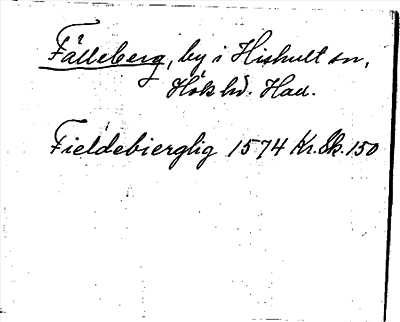 Fälleberg, by i Hishult sn,
Höks hd. Hall.
Fieldebierglig 1574 Kr. Sk. 150